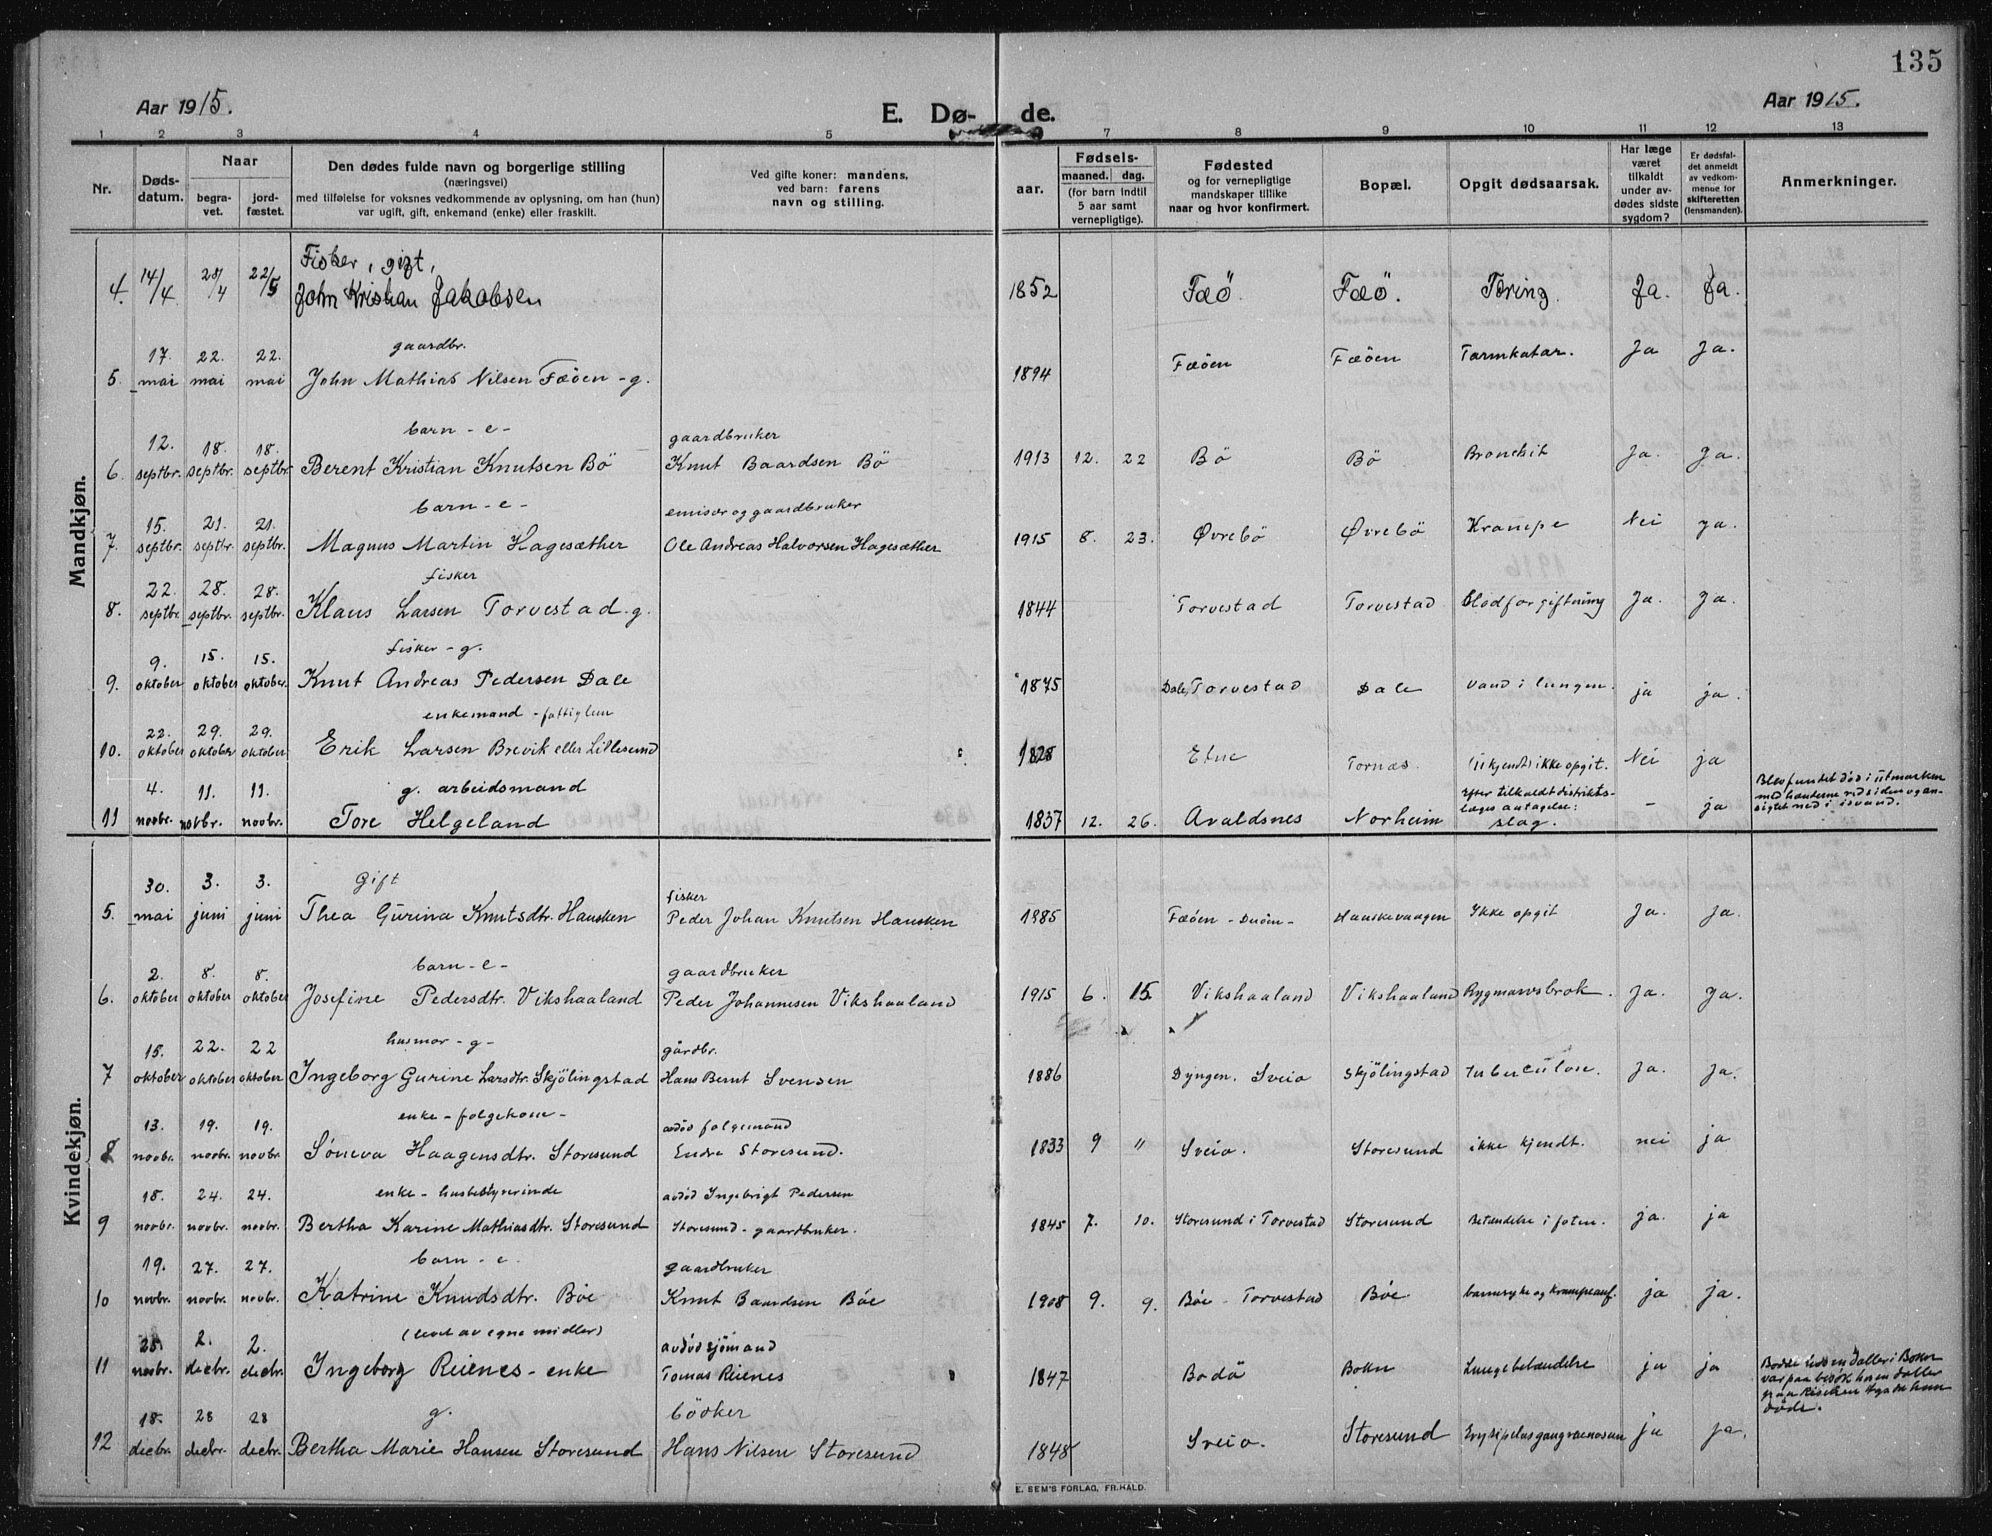 135
Aar 1915.
E. Dø- de.
Aar 1915.
1 2 3 4 5 7 8 9 10 11 12 13
Nr.
Døds-
datum.
Naar
begra-
vet.
jord-
fæstet.
Den dødes fulde navn og borgerlige stilling
(næringsvei)
med tilføielse for voksnes vedkommende av oplysning, om han (hun)
var ugift, gift, enkemand (enke) eller fraskilt.
Ved gifte koner: mandens,
ved barn: farens
navn og stilling.
aar.
Fødsels-
maaned. dag.
(for barn indtil
5 aar samt
vernepligtige).
Fødested
og for vernepligtige
mandskaper tillike
naar og hvor konfirmert.
Bopæl.
Opgit dødsaarsak.
Har læge
været
tilkaldt
under av-
dødes sidste
sygdom?
Er dødsfal-
det anmeldt
av vedkom-
mende for
skifteretten
(lensmanden).
Anmerkninger.
Mandkjøn.
Fisker, gift,
4. 14/4 28/4 22/5 John Kristian Jakobsen 1852 Fæö. Fæö. Tæring. Ja. Ja.
17. 22. 22. gaardbr.
5. mai mai mai John Mathias Nilsen Fæöen - g. 1894 Fæöen Fæöen Tarmkatar. Ja Ja.
12. 18. 18. barn - e - gaardbruker
6. septbr. septbr. septbr. Berent Kristian Knutsen Bö Knut Baardsen Bö 1913 12. 22 Bö Bö Bronchit Ja. Ja.
15. 21. 21. barn - e - emisær og gaardbruker
7. septbr. septbr. septbr. Magnus Martin Hagesæther Ole Andreas Halvorsen Hagesæther 1915 8. 23. Øvrebö Øvrebö Krampe Nei ja.
22. 28. 28. fisker
8. septbr. septbr. septbr. Klaus Larsen Torvestad - g. 1844 Torvestad Torvestad Blodforgiftning Ja. Ja.
9. 15. 15. fisker - g.
9. oktober oktober oktober. Knut Andreas Pedersen Dale 1875 Dale, Torvestad Dale Vand i lungen. ja ja.
22. 29. 29. enkemand - fattiglem
10. oktober oktober oktober Erik Larsen Brevik eller Lillesund 1828 Etne Tornæs. (ukjendt) ikke opgit. Nei ja
4. 11. 11. g. arbeidsmand
11 novbr. novbr. novbr. Tore Helgeland 1837 12. 26. Avaldsnes Norheim Efter tilkaldt distrikts-
læges antagelse:
slag. - ja Blev fundet död i utmarken
med hænderne ved siden og an-
sigtet ned i isvand.
Kvindekjøn.
30. 3. 3. Gift fisker
5. mai juni juni Thea Gurina Knutsdtr. Hausken Peder Johan Knutsen Hausken 1985 Fæöen - - Hauskevaagen Ikke opgit Ja. Ja.
2. 8. 8. barn - e - gaardbruker
6. oktober oktober oktober Josefine Pedersdtr. Vikshaaland Peder Johannesen Vikshaaland 1915 6. 15. Vikshaaland Vikshaaland Rygmarvsbrok. Ja. Ja.
15. 22. 22 husmor - g - gårdbr.
7 oktober oktober oktober Ingeborg Gurine Larsdtr. Skjölingstad Hans Bernt Svensen 1886 Dyngen. Sveio Skjölingstad tuberculose. Ja. Ja.
13. 19. 19. enke - folgekone - avdöd folgemand
8 novbr. novbr. novbr. Söneva Haagensdtr. Storesund Endre Storesund. 1833 9 " Sveio. Storesund ikke kjendt. nei ja
18. 24. 24. enke - husbestyrerinde avdöd Ingebrigt Pedersen
9 novbr. novbr. novbr. Bertha Karine Mathiasdtr. Storesund Storesund - gaardbruker. 1845 7. 10. Storesund i Torvestad Storesund Betændelse i foten. ja. ja
19. 27. 27. barn - e. gaardbruker
10 novbr. novbr. novbr. Katrine Knudsdtr. Böe Knut Baardsen Böe 1908 9. 9. Böe - Torvestad Böe. barnesyke og krampeanf. ja ja.
25. 2. 2. (levet av egne midler) avdöd sjömand
11 novbr. decbr. decbr. Ingeborg Reienes - enke Tomas Reienes 1847 Bodö Bokn Lungebetændelse ja ja Bodde hos en datter i Bokn
var paa besök hos en datter
da hun
döde.
18. 28 28 g. bödker
12 decbr. decbr. decbr. Bertha Marie Hansen Storesund Hans Nilsen Storesund 1848 Sveio. Storesund Erysipelas gangraenosum ja ja.
E. SEM'S FORLAG, FR.HALD.